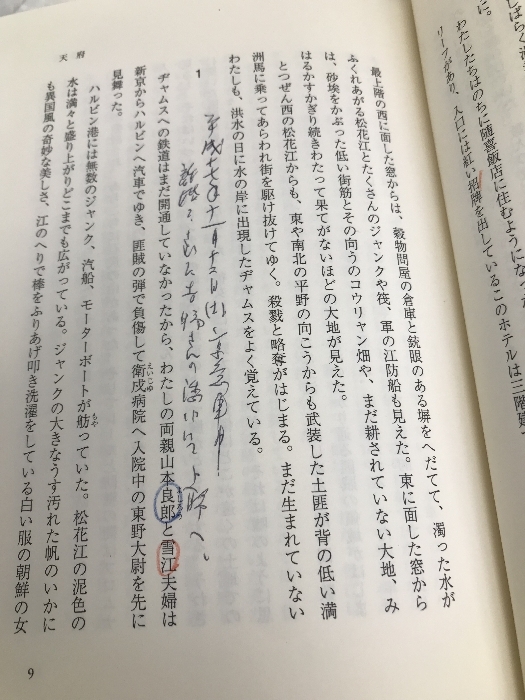 に。
しばらく海
わたしたちはのちに随喜飯店に住むようになっ
リーフがあり、入口には紅い招牌を出しているこのホテルは三階建
最上階の西に面した窓からは、穀物問屋の倉庫と銃眼のある塀をへだてて、濁った水が
ふくれあがる松花江とたくさんのジャンクや筏、軍の江防船も見えた。東に面した窓から
は、砂埃をかぶった低い街筋とその向うのコウリャン畑や、まだ耕されていない大地、み
はるかすかぎり続きわたって果てがないほどの大地が見えた。
とつぜん西の松花江からも、東や南北の平野の向こうからも武装した土匪が背の低い満
洲馬に乗ってあらわれ街を駆け抜けてゆく。殺戮と略奪がはじまる。まだ生まれていない
わたしも、洪水の日に水の岸に出現したヂャムスをよく覚えている。
1
平成十七年十一月十六日
ヂャムスへの鉄道はまだ開通していなかったから、わたしの両親山本良郎と雪江夫婦は
新京からハルビンへ汽車でゆき、匪賊の弾で負傷して衛戍病院へ入院中の東野大尉を先に
えいじゅ
見舞った。
ハルビン港には無数のジャンク、汽船、モーターボートが舫っていた。松花江の泥色の
もや
水は満々と盛り上がりどこまでも広がっている。ジャンクの大きなうす汚れた帆のいかに
も異国風の奇妙な美しさ、江のへりで棒をふりあげ叩き洗濯をしている白い服の朝鮮の女
天府
9